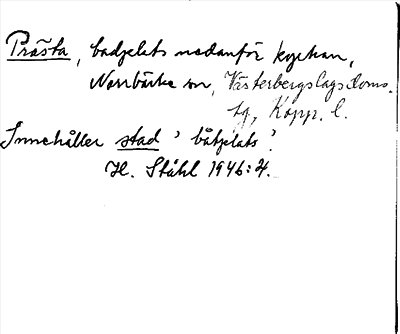 Prästa, badplats nedanför kyrkan,
Norrbärke sn, Västerbergslags doms.
tg, Kopp. l.
Innehåller stad 'båtplats'.
H. Ståhl 1946:4.